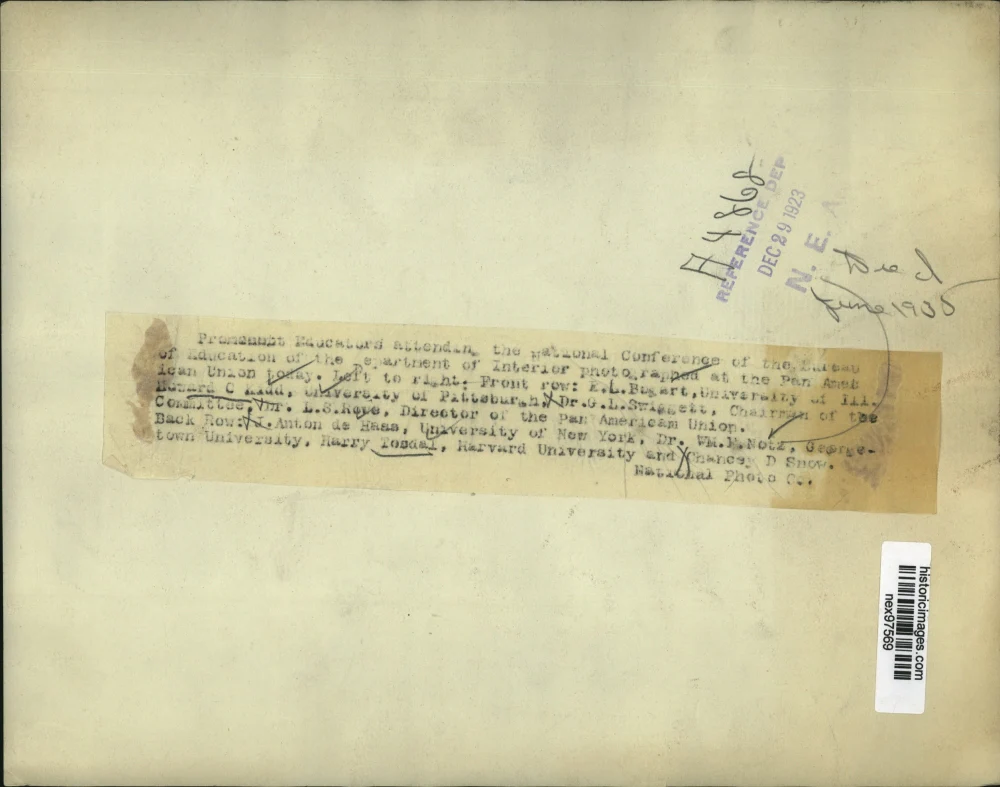 H4868
REFERENCE DEP
DEC 29 1923
N. E. A.
Died
June 1935
Prominent Educators attending the National Conference of the Bureau
of Education of the Department of Interior photographed at the Pan Amer
ican Union today. Left to right: Front row: E.L.Bogart,University of Ill.
Howard C Kidd, University of Pittsburgh, Dr.G.L.Swiggett, Chairman of the
Committee, Dr. L.S.Rowe, Director of the Pan American Union.
Back Row: J.Anton de Haas, University of New York, Dr. WM.F.Notz, George-
town University, Harry Tosdal, Harvard University and Chancey D Snow.
National Photo Co.
historicimages.com
nex97569